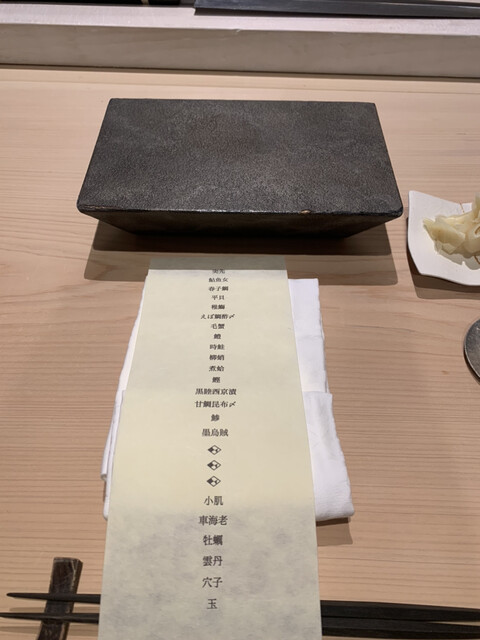 鮎魚女
春子鯛
平目
えぼ鯛酢〆
毛蟹
時鮭
柳蛸
煮蛤
鰹
黒陸西京漬
甘鯛昆布〆
鯵
墨烏賊
小肌
車海老
牡蠣
雲丹
穴子
玉